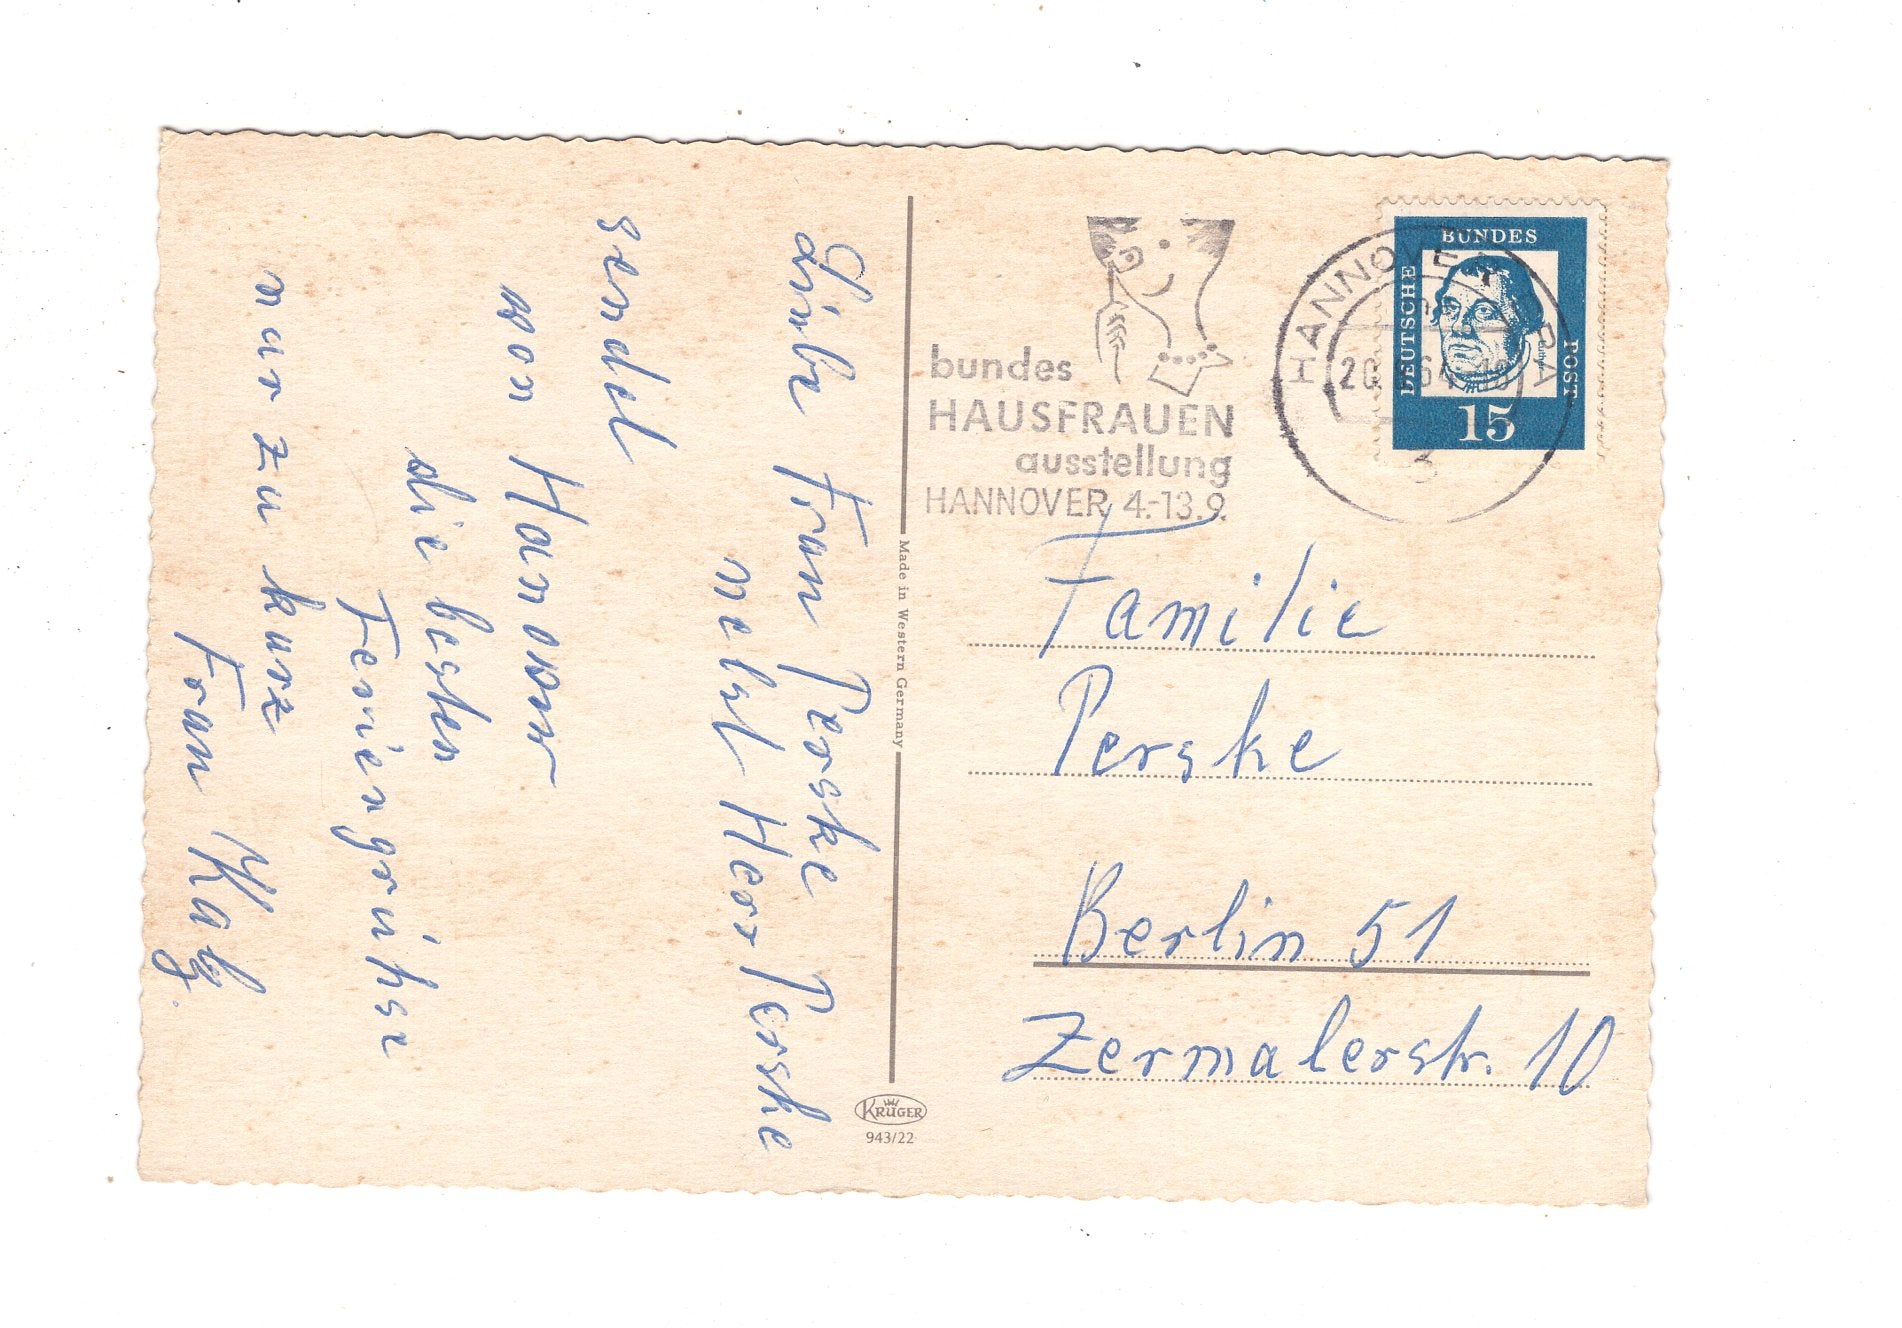 Liebe Frau Perske
nebst Herr Perske
sendet
von Hanover
die besten
Feriengrühse
nur zu kurz
Frau Katz.
Made in Western Germany
KRÜGER
943/22
bundes
HAUSFRAUEN
ausstellung
HANNOVER 4.-13.9.
HANNOVER
20 64 18
3
DEUTSCHE
BUNDES
POST
15
Familie
Perske
Berlin 51
Zermalerstr. 10